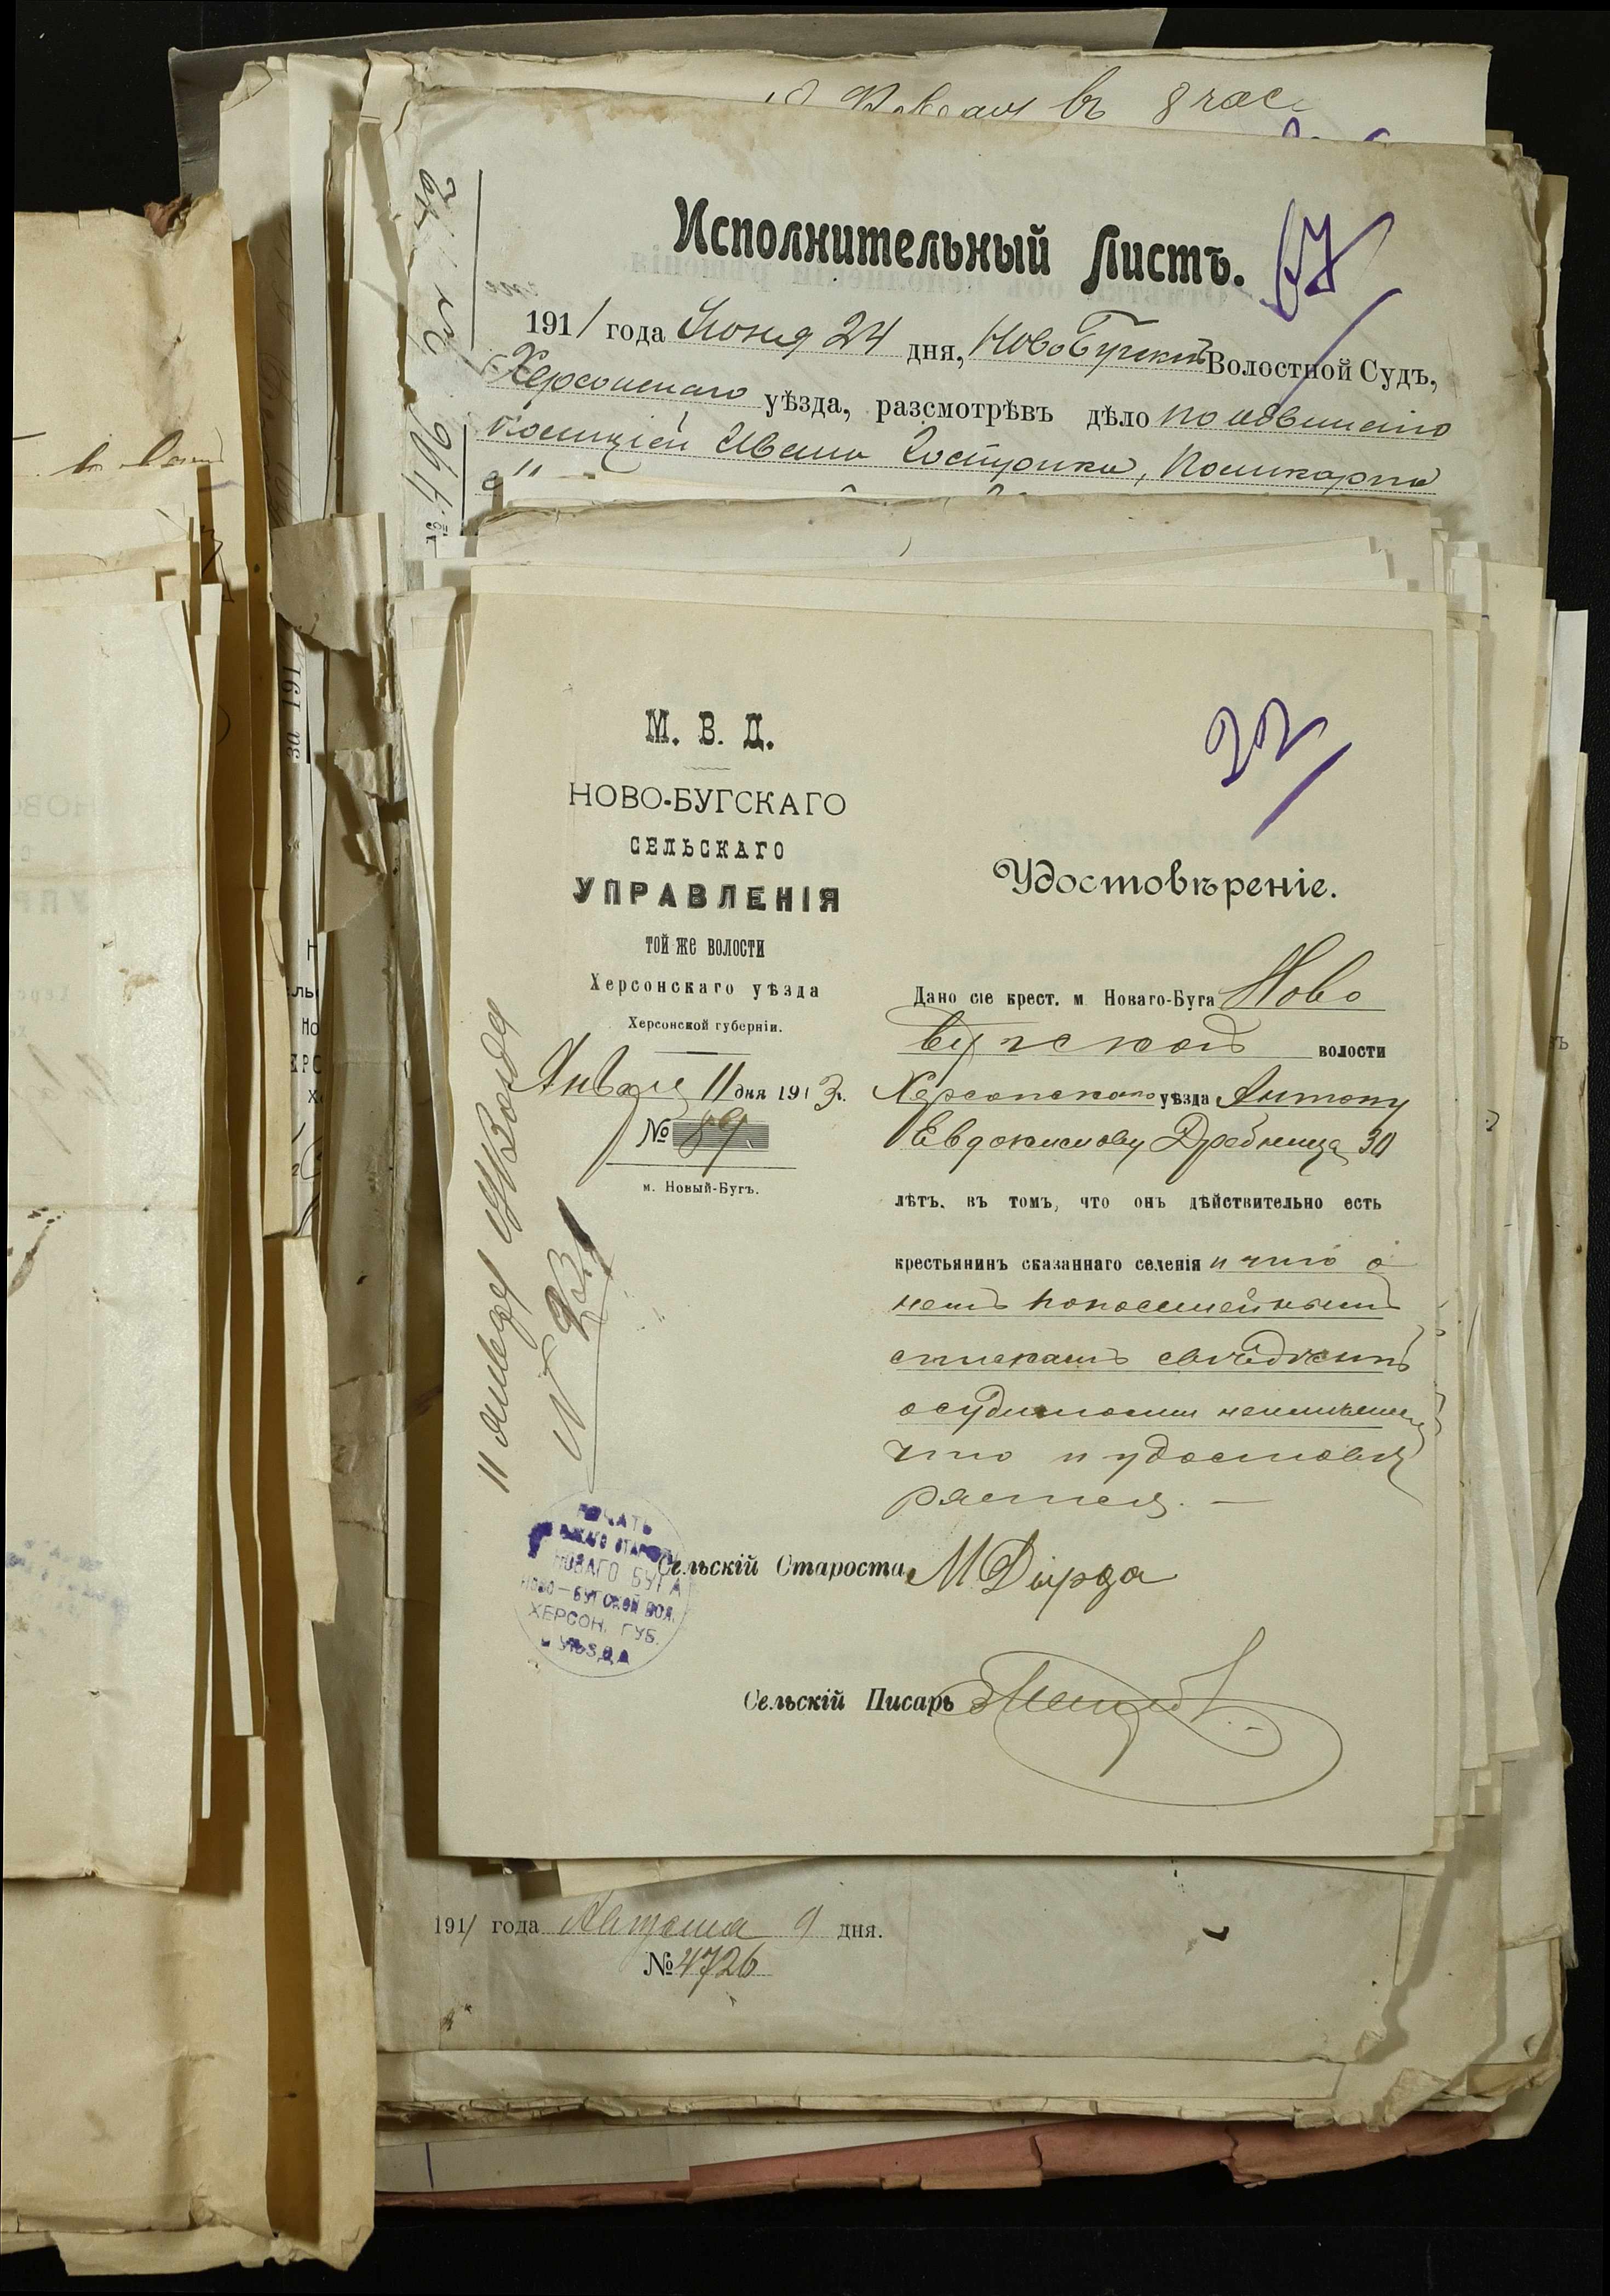 въ 8 час
Исполнительный Листъ.
67
1911 года Іюня 24 дня, Ново Бугскій Волостной Судъ,
Херсонскаго уѣзда, разсмотрѣвъ дѣло по
полиціей Ивана Поликарпа
М. В. Д.
НОВО-БУГСКАГО
СЕЛЬСКАГО
УПРАВЛЕНІЯ
ТОЙ ЖЕ ВОЛОСТИ
Херсонскаго уѣзда
Херсонской губерніи.
Января 11 дня 1913 г.
№ 89.
м. Новый-Бугъ.
11 января
22
Удостовѣреніе.
Дано сіе крест. м. Новаго-Буга Ново
Бугской волости
Херсонскаго уѣзда Антону
Евдокимову Дребница 30
лѣтъ, въ томъ, что онъ дѣйствительно есть
крестьянинъ сказаннаго селенія и что о
немъ по посемейнымъ
спискамъ свѣдѣній
о судимости не имѣется
что и удостовѣ
ряется. —
ПЕЧАТЬ
СЕЛЬСКАГО СТАРОСТЫ
НОВАГО БУГА
НОВО-БУГСКОЙ ВОЛ.
ХЕРСОН. ГУБ.
И УѢЗДА
Сельскій Староста М Дырда
Сельскій Писарь
1911 года Августа 9 дня.
№ 4726